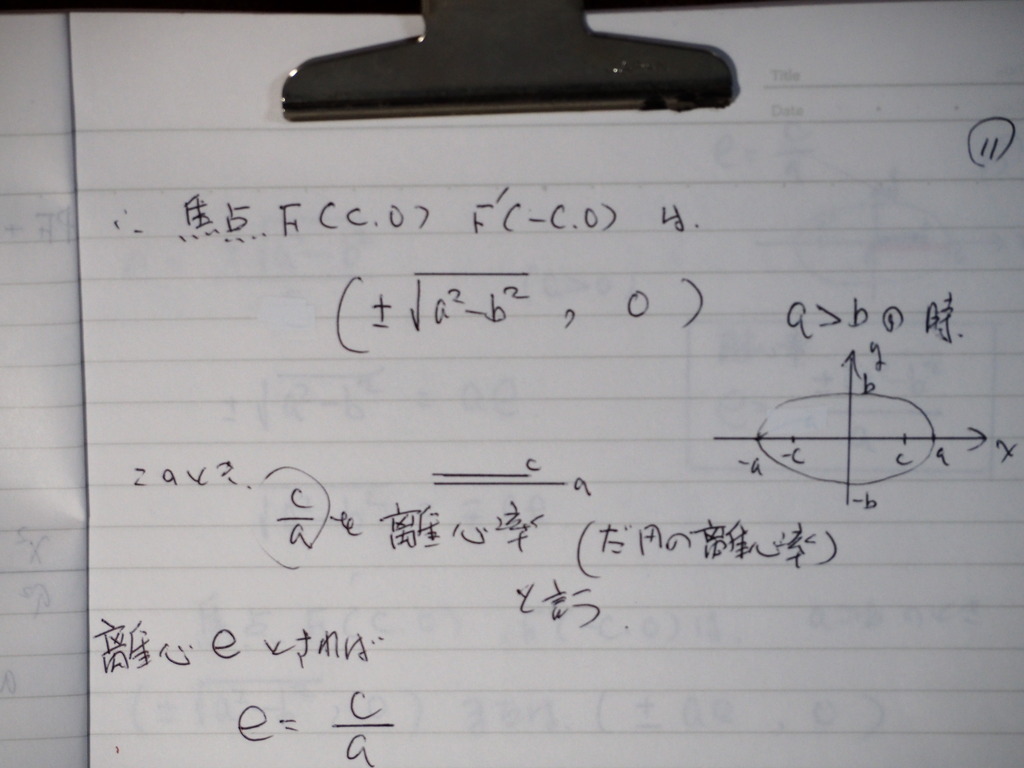 Title
Date
⑪
∴ 焦点 F(c.0) F'(-c.0) は.
(±√(a²-b²), 0)
a>bの時.
y
b
-a -c c a x
-b
このとき、
c
a
c/a を 離心率 (だ円の離心率)
と言う.
離心eとすれば
e = c/a